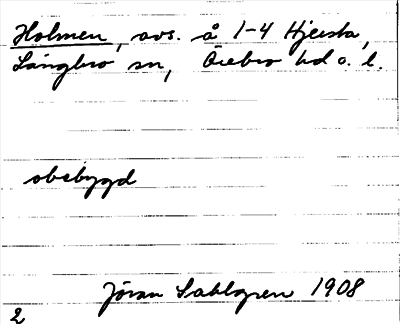 Holmen, avs. å 1-4 Hjersta,
Långbro sn, Örebro hd o. l.
obebyggd
Jöran Sahlgren 1908
2